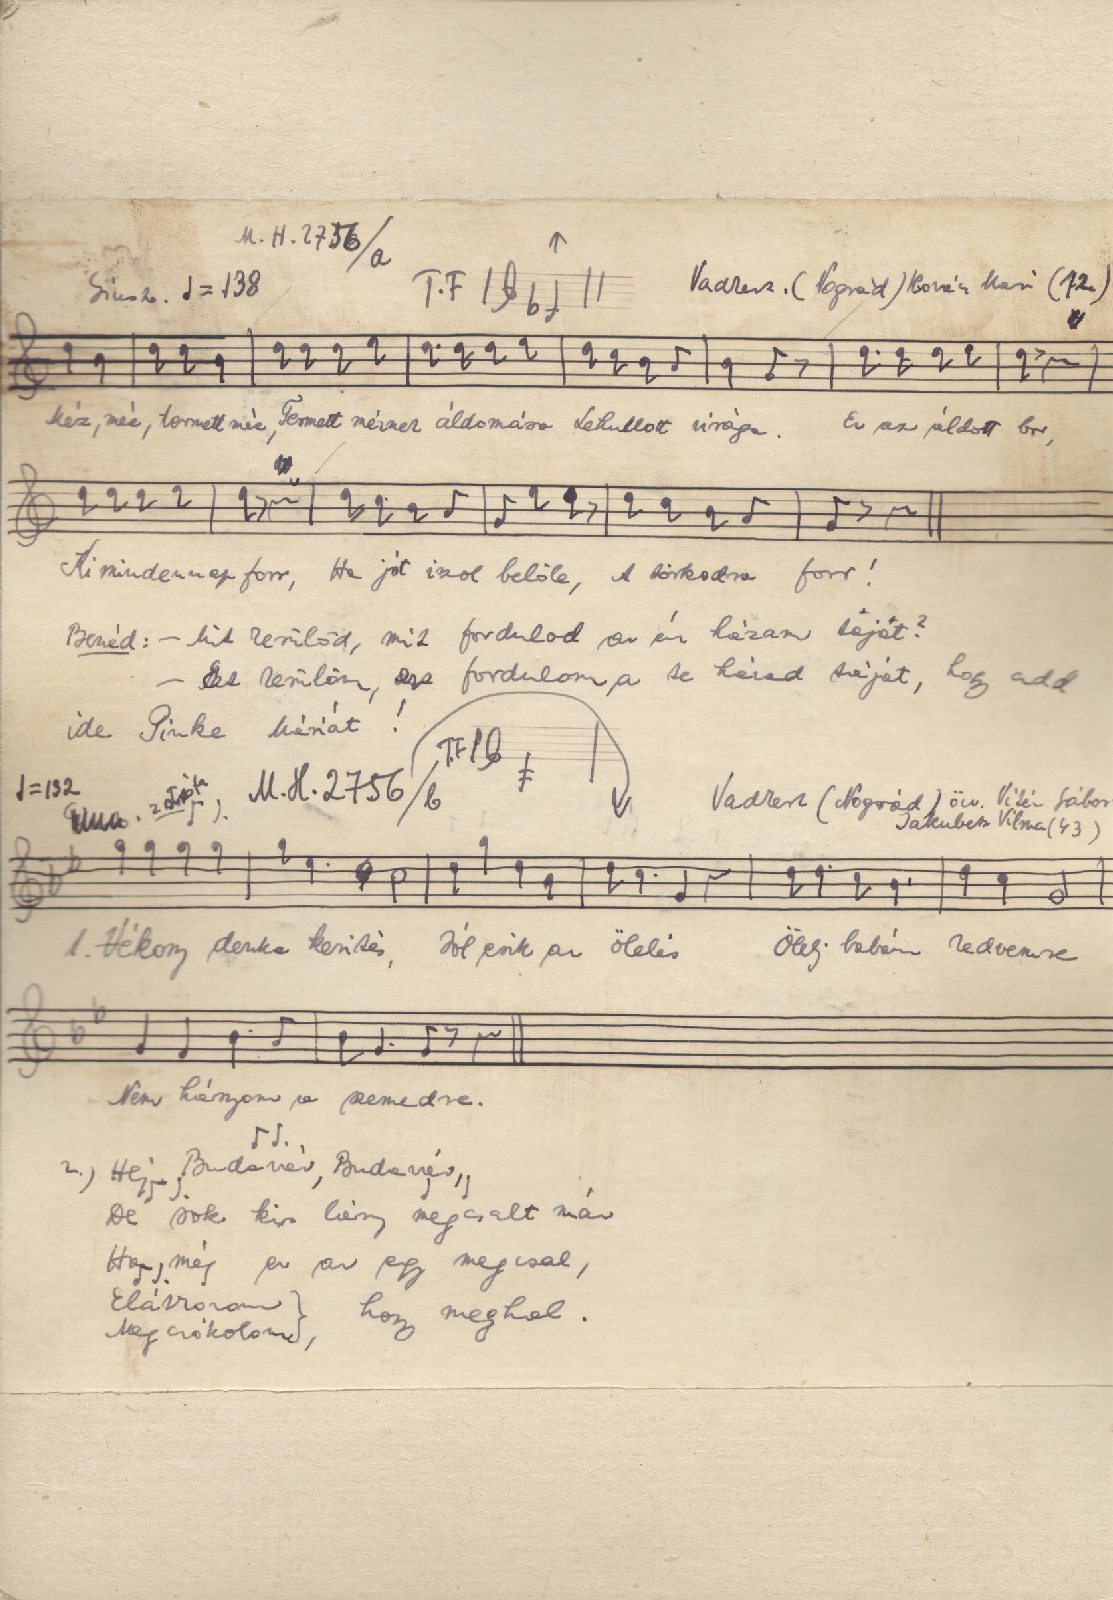 M.H.2756/a
♩=138 T.F Vadkert. (Nográd) Kovács Mari (72)
Méz, méz, termett méz, Termett méznek áldomása Lehullott virága. Ez az áldott bor,
Ki mindennap forr, Ha jót iszol belőle, A torkodra forr!
Beszéd: – Mit kerülöd, mit fordulod az én házam táját?
– Azt kerülöm, azt fordulom, a te házad táját, hogy add
ide Pinke Máriát!
T.F
♩=132 M.H.2756/b
Vadkert (Nográd) öv. Vitéz Gábor
Jakubecz Vilma (43)
1. Vékony deszka kerítés, Jól esik az ölelés Ölelj babám kedvemre
Nem hányom a szemedre.
2.) Héj, Budavár, Budavár,
De sok kis lány megcsalt már
Ha még ez az egy megcsal,
Elátkozom
Megcsókolom, hogy meghal.